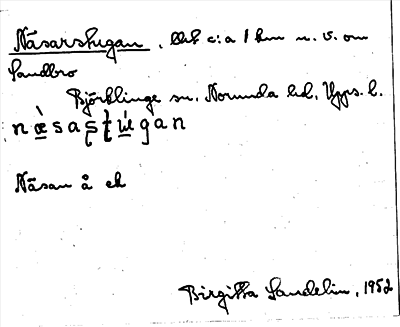 Näsarstugan, bbt c:a 1 km n. v. om
Sandbro
Björklinge sn. Norunda hd, Upps. l.
næ̀saʂʈɯ́gàn
Näsan å ek
Birgitta Sandelin, 1952